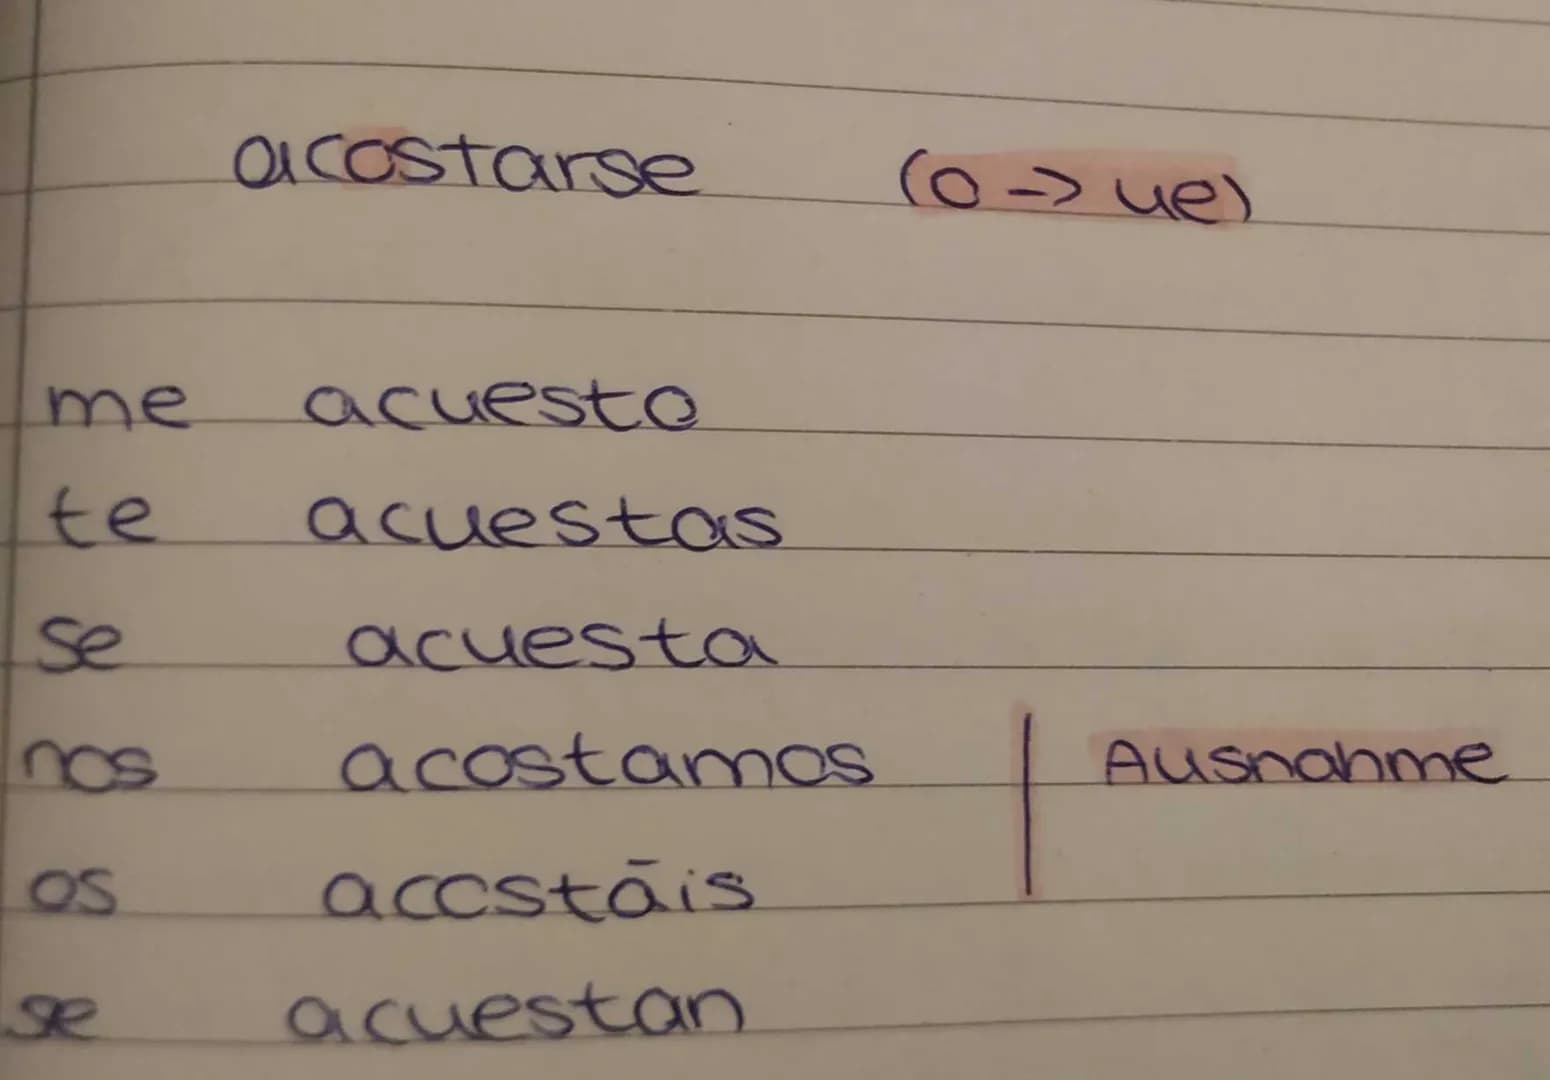 acostarse (o -> ue)
me acuesto
te acuestas
se acuesta
nos acostamos | Ausnahme
os acostāis
se acuestan